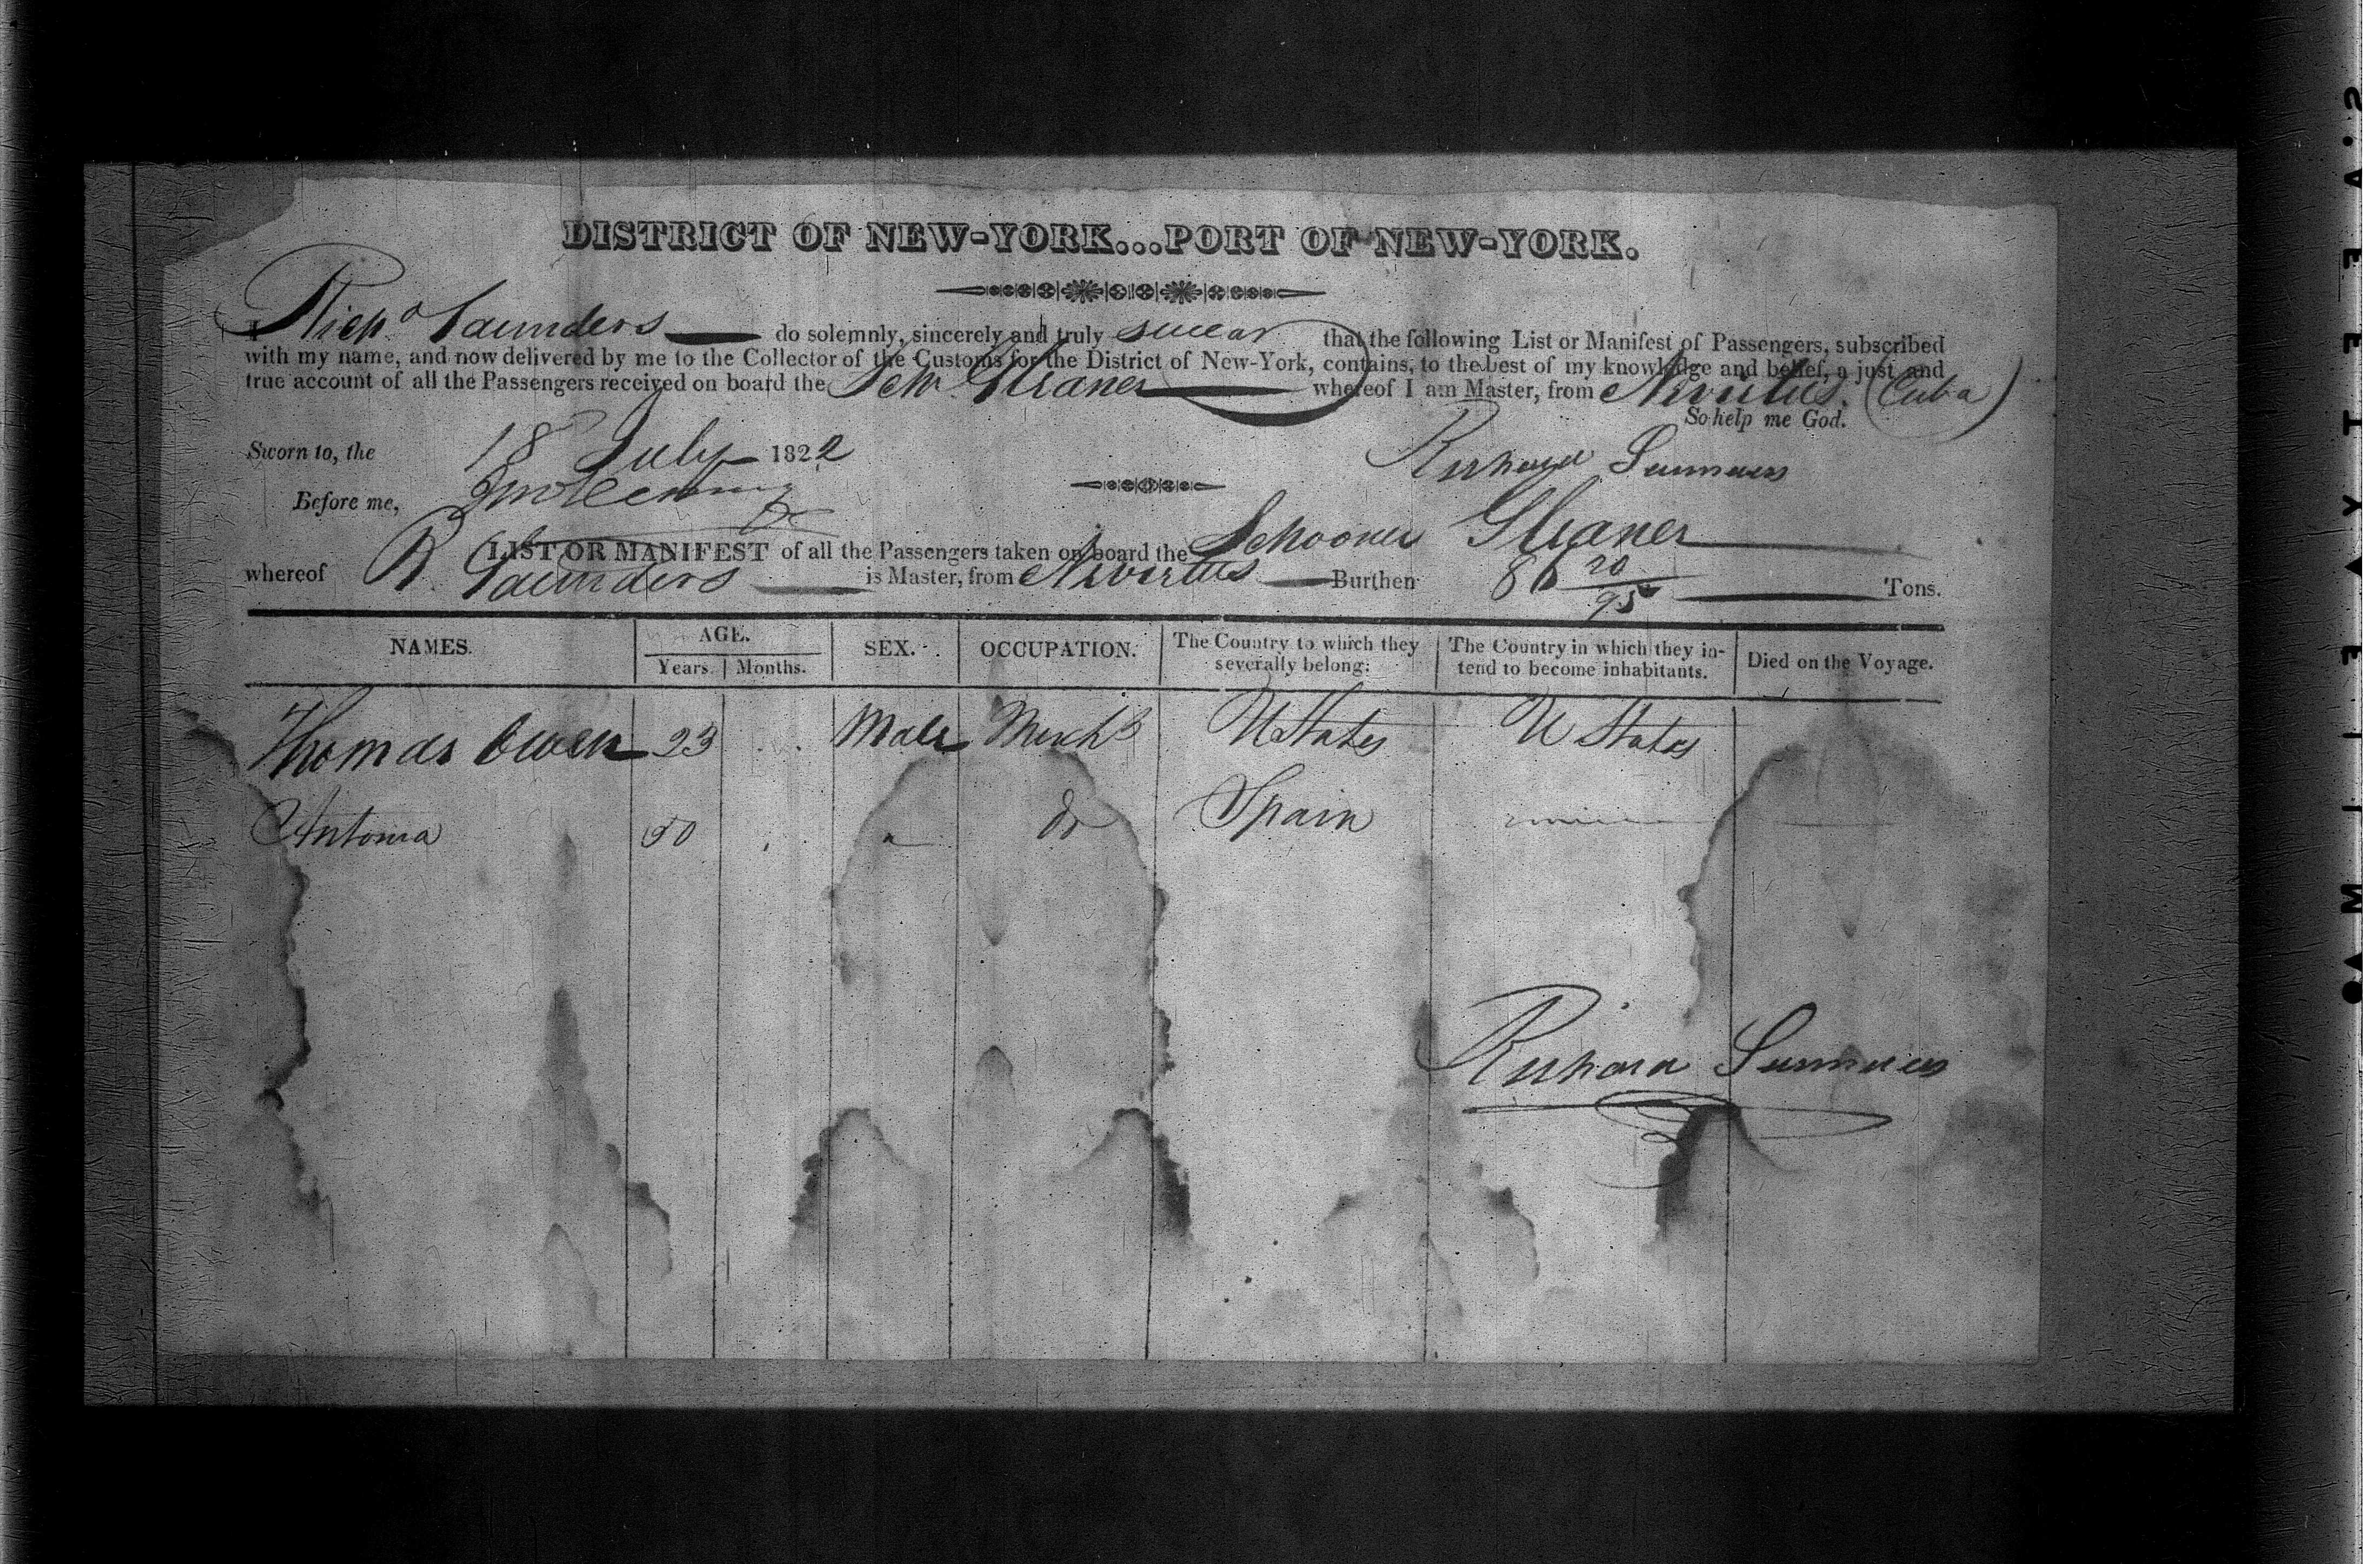 DISTRICT OF NEW-YORK...PORT OF NEW-YORK.
I Richd Saunders do solemnly, sincerely and truly swear that the following List or Manifest of Passengers, subscribed
with my name, and now delivered by me to the Collector of the Customs for the District of New-York, contains, to the best of my knowledge and belief, a just and
true account of all the Passengers received on board the Schr Gleaner whereof I am Master, from Nuvitus. (Cuba)
So help me God.
Sworn to, the 18 July 1822 Richard Saunders
Before me,
LIST OR MANIFEST of all the Passengers taken on board the Schooner Gleaner
whereof R Saunders is Master, from Nuvitus Burthen 86 20/95 Tons.
NAMES. AGE. SEX. OCCUPATION. The Country to which they severally belong. The Country in which they intend to become inhabitants. Died on the Voyage.
Years. Months.
Thomas Owen 23 Male Mercht U States U States
Antonia 50 do Spain
Richard Saunders